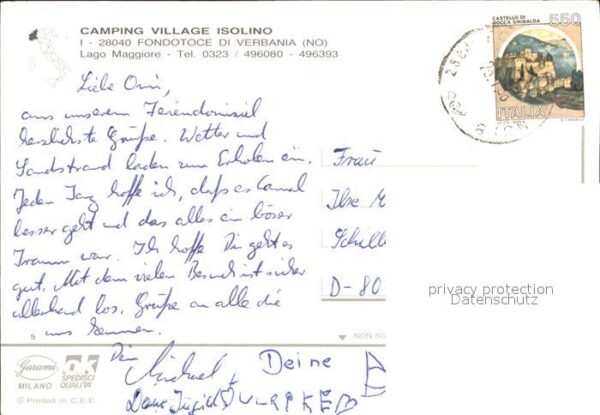 CAMPING VILLAGE ISOLINO
I - 28040 FONDOTOCE DI VERBANIA (NO)
Lago Maggiore - Tel. 0323 / 496080 - 496393
CASTELLO DI
ROCCA SINIBALDA
550
ITALIA
Liebe Omi,
aus unserem Feriendomizil
herzlichste Grüße. Wetter und
Sandstrand laden zum Erholen ein.
Jeden Tag hoffe ich, daß es
besser geht und das alles ein böser
Traum war. Ich hoffe Dir geht es
gut. Mit dem vielen Besuch ist sicher
allerhand los. Grüße an alle die
uns kennen.
Frau
Ilse
D-80
privacy protection
Datenschutz
5
NON SC
Dein Michael
Deine
ULRIKE
Garami
MILANO
ok
SPEDISCI
QUALITA'
© Printed in C.E.E.